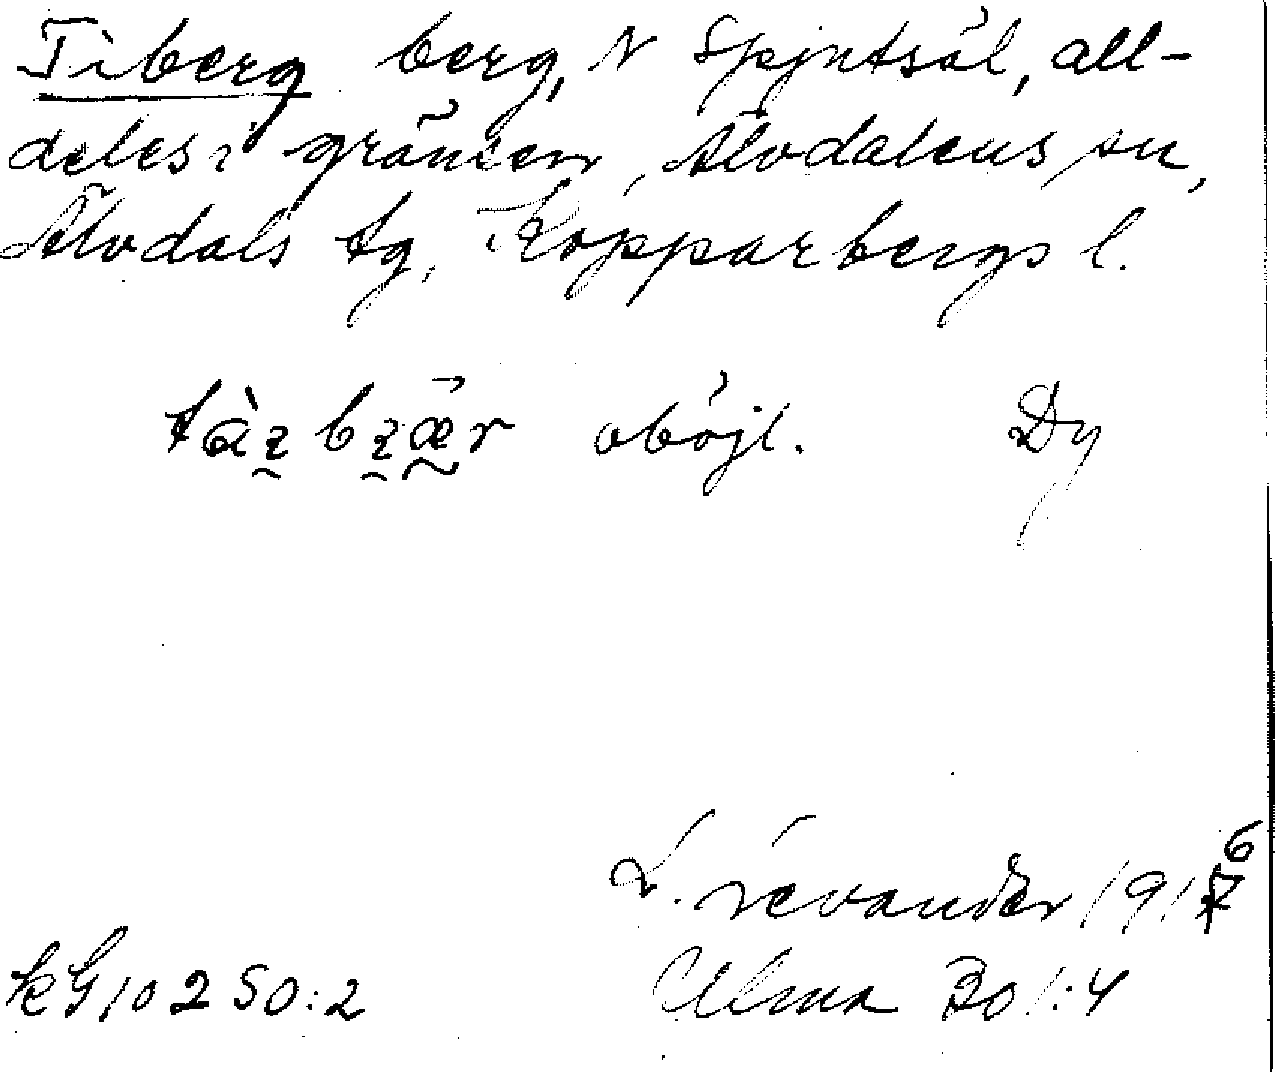 Tiberg berg, N Spjutsål, all-
deles i gränsen, Älvdalens sn,
Älvdals tg, Kopparbergs l.
oböjl. Dy
L. Levander 1916
kG10250:2 Ulma 301:4